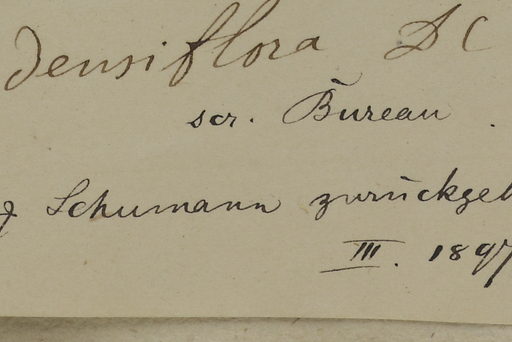 densiflora DC
scr. Bureau.
Schumann zurückgeb
III. 1897